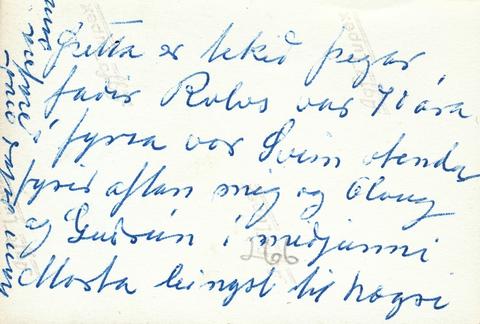 þetta er tekið þegar
faðir Robos var 70 ára
í fyrra vor Svein stendur
fyrir aftan mig og Oloug
og Guðrún í miðjunni
Marta leingst til hægri